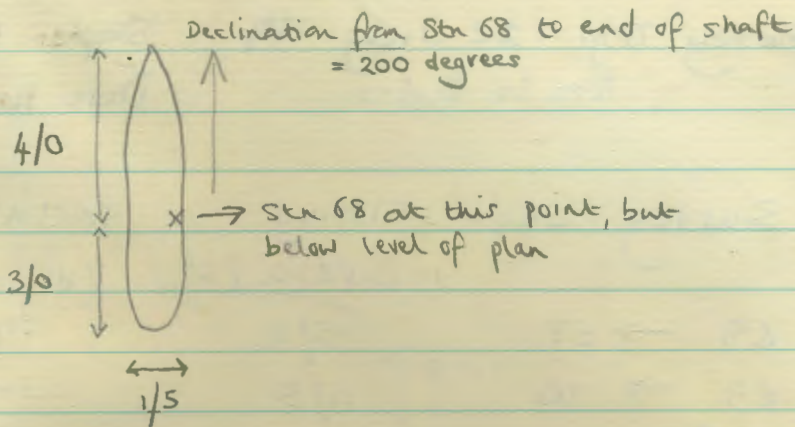 Declination from Stn 68 to end of shaft
= 200 degrees
4/0
x → Stn 68 at this point, but
below level of plan
3/0
1/5